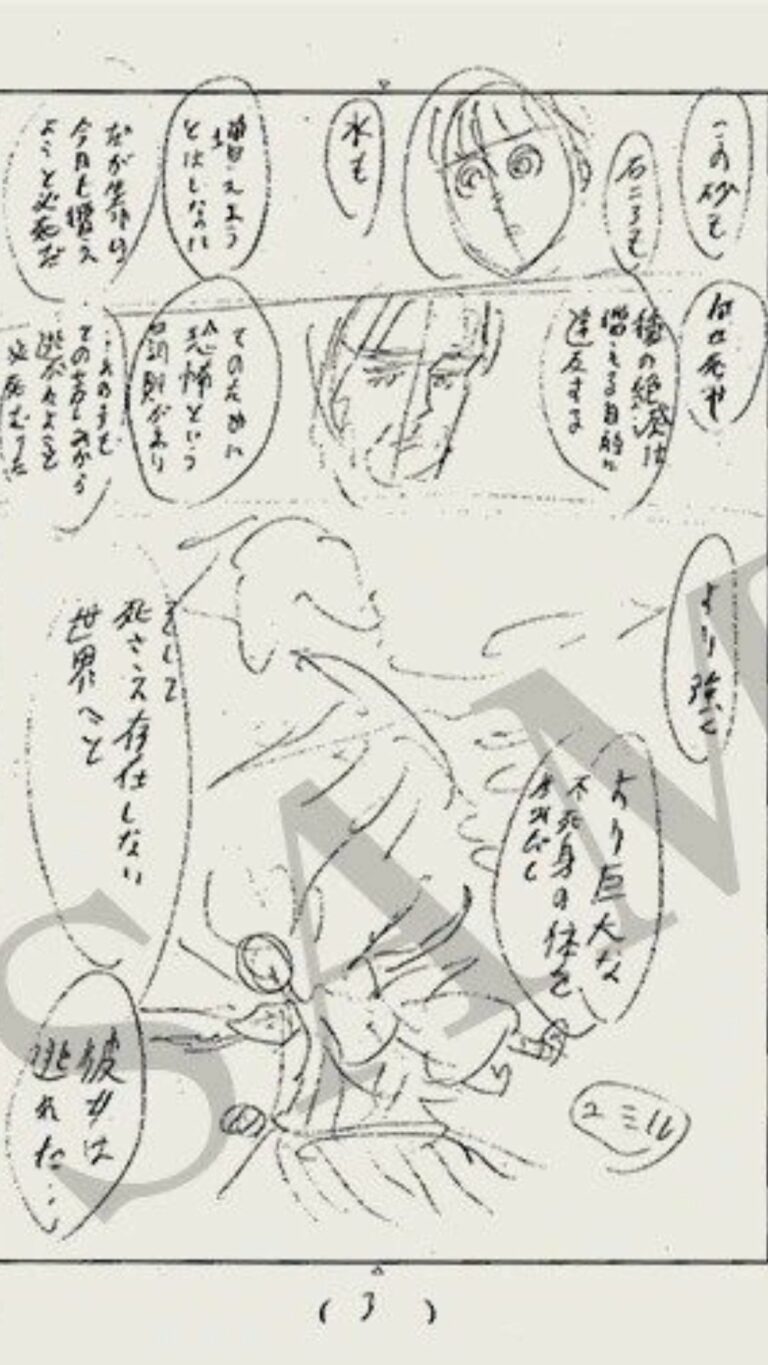 この砂も
石ころも
水も
増えよう
とはしないのに
だが生命は
今日も増え
ようと必死だ
何せ死や
種の絶滅は
増える目的に
違反する
そのために
恐怖という
罰則があり
その苦しみから
逃がれようと
必死だった
より強く
より巨大な
不死身の体を
そして
死さえ存在しない
世界へと
ユミル
彼女は
逃れた…
(3)
SAM